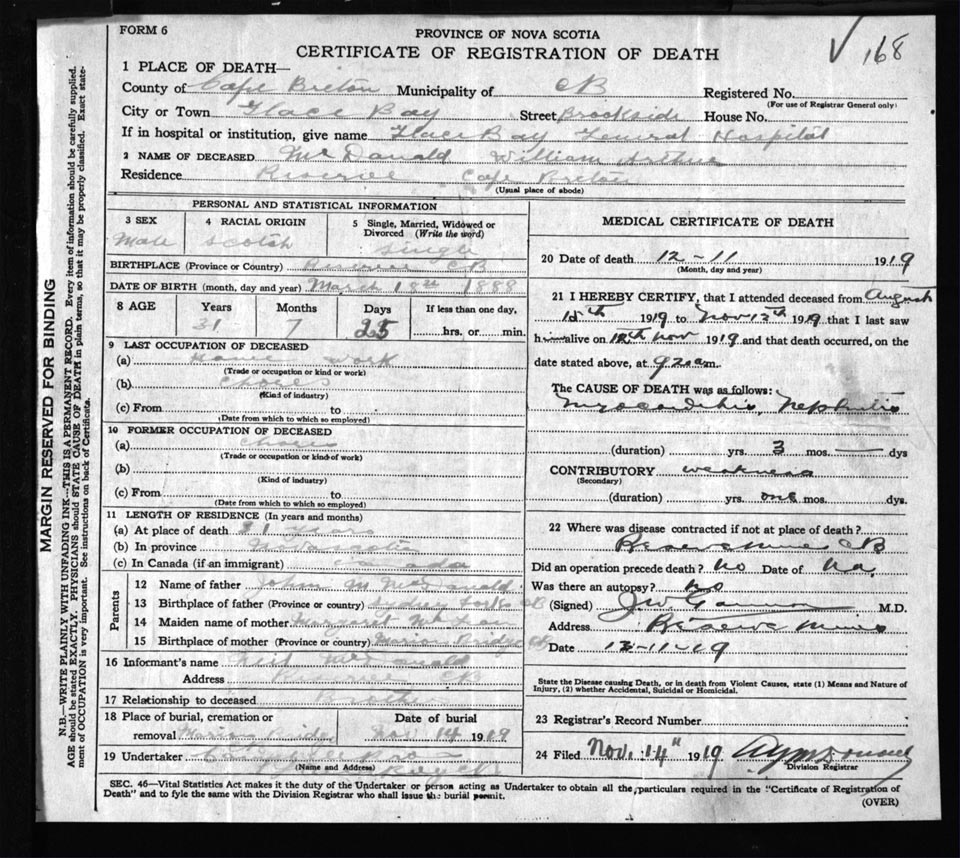 FORM 6
PROVINCE OF NOVA SCOTIA
CERTIFICATE OF REGISTRATION OF DEATH
168
1 PLACE OF DEATH—
County of Cape Breton Municipality of CB Registered No.
(For use of Registrar General only)
City or Town Glace Bay Street Brookside House No.
If in hospital or institution, give name Glace Bay General Hospital
2 NAME OF DECEASED McDonald William Arthur
Residence Reserve Cape Breton
(Usual place of abode)
PERSONAL AND STATISTICAL INFORMATION
3 SEX 4 RACIAL ORIGIN 5 Single, Married, Widowed or
Divorced (Write the word)
Male Scotch Single
BIRTHPLACE (Province or Country) Reserve CB
DATE OF BIRTH (month, day and year) March 18th 1888
8 AGE Years Months Days If less than one day,
31 7 25 hrs. or min.
9 LAST OCCUPATION OF DECEASED
(a) work
(Trade or occupation or kind or work)
(b) chores
(Kind of industry)
(c) From to
(Date from which to which so employed)
10 FORMER OCCUPATION OF DECEASED
(a) chores
(Trade or occupation or kind of work)
(b)
(Kind of industry)
(c) From to
(Date from which to which so employed)
11 LENGTH OF RESIDENCE (In years and months)
(a) At place of death 31 years
(b) In province Nova Scotia
(c) In Canada (if an immigrant) Canada
Parents
12 Name of father John M McDonald
13 Birthplace of father (Province or country) Sydney Forks CB
14 Maiden name of mother Margaret
15 Birthplace of mother (Province or country) Marion Bridge CB
16 Informant's name Neil McDonald
Address Reserve CB
17 Relationship to deceased Brother
18 Place of burial, cremation or Date of burial
removal Marion Bridge Nov 14 1919
19 Undertaker
(Name and Address)
MEDICAL CERTIFICATE OF DEATH
20 Date of death 12-11 1919
(Month, day and year)
21 I HEREBY CERTIFY, that I attended deceased from August
15th 1919 to Nov 12th 1919 that I last saw
him alive on 12th Nov 1919 and that death occurred, on the
date stated above, at 9.20 a.m.
The CAUSE OF DEATH was as follows:
Myocarditis, Nephritis
(duration) yrs. 3 mos. — dys
CONTRIBUTORY weakness
(Secondary)
(duration) yrs. one mos. dys.
22 Where was disease contracted if not at place of death?
Reserve Mines CB
Did an operation precede death? no Date of na.
Was there an autopsy? no
(Signed) M.D.
Address Reserve Mines
Date 12-11-19
State the Disease causing Death, or in death from Violent Causes, state (1) Means and Nature of
Injury, (2) whether Accidental, Suicidal or Homicidal.
23 Registrar's Record Number
24 Filed Nov. 14" 1919
Division Registrar
SEC. 46—Vital Statistics Act makes it the duty of the Undertaker or person acting as Undertaker to obtain all the particulars required in the "Certificate of Registration of
Death" and to fyle the same with the Division Registrar who shall issue the burial permit.
(OVER)
MARGIN RESERVED FOR BINDING
N.B.—WRITE PLAINLY WITH UNFADING INK—THIS IS A PERMANENT RECORD. Every item of information should be carefully supplied.
AGE should be stated EXACTLY. PHYSICIANS should STATE CAUSE OF DEATH in plain terms, so that it may be properly classified. Exact state-
ment of OCCUPATION is very important. See instructions on back of Certificate.